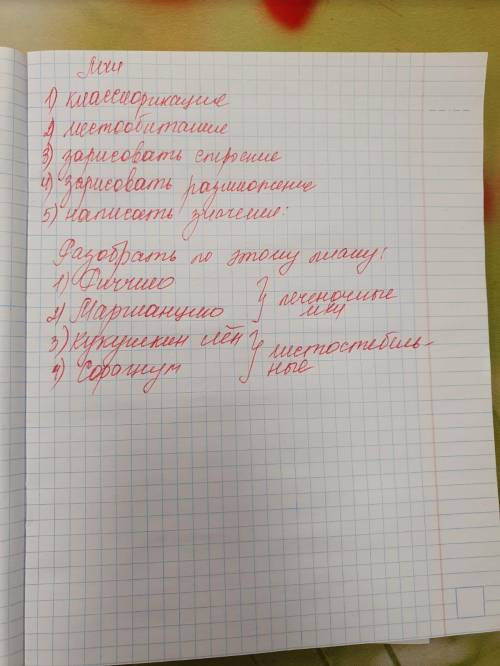 Мхи
1) классификация
2) местообитание
3) зарисовать строение
4) зарисовать размножение
5) написать значение:
Разобрать по этому плану:
1) Риччию
2) Маршанцию } печеночные мхи
3) Кукушкин лён
4) Сфагнум } листостебель-
ные